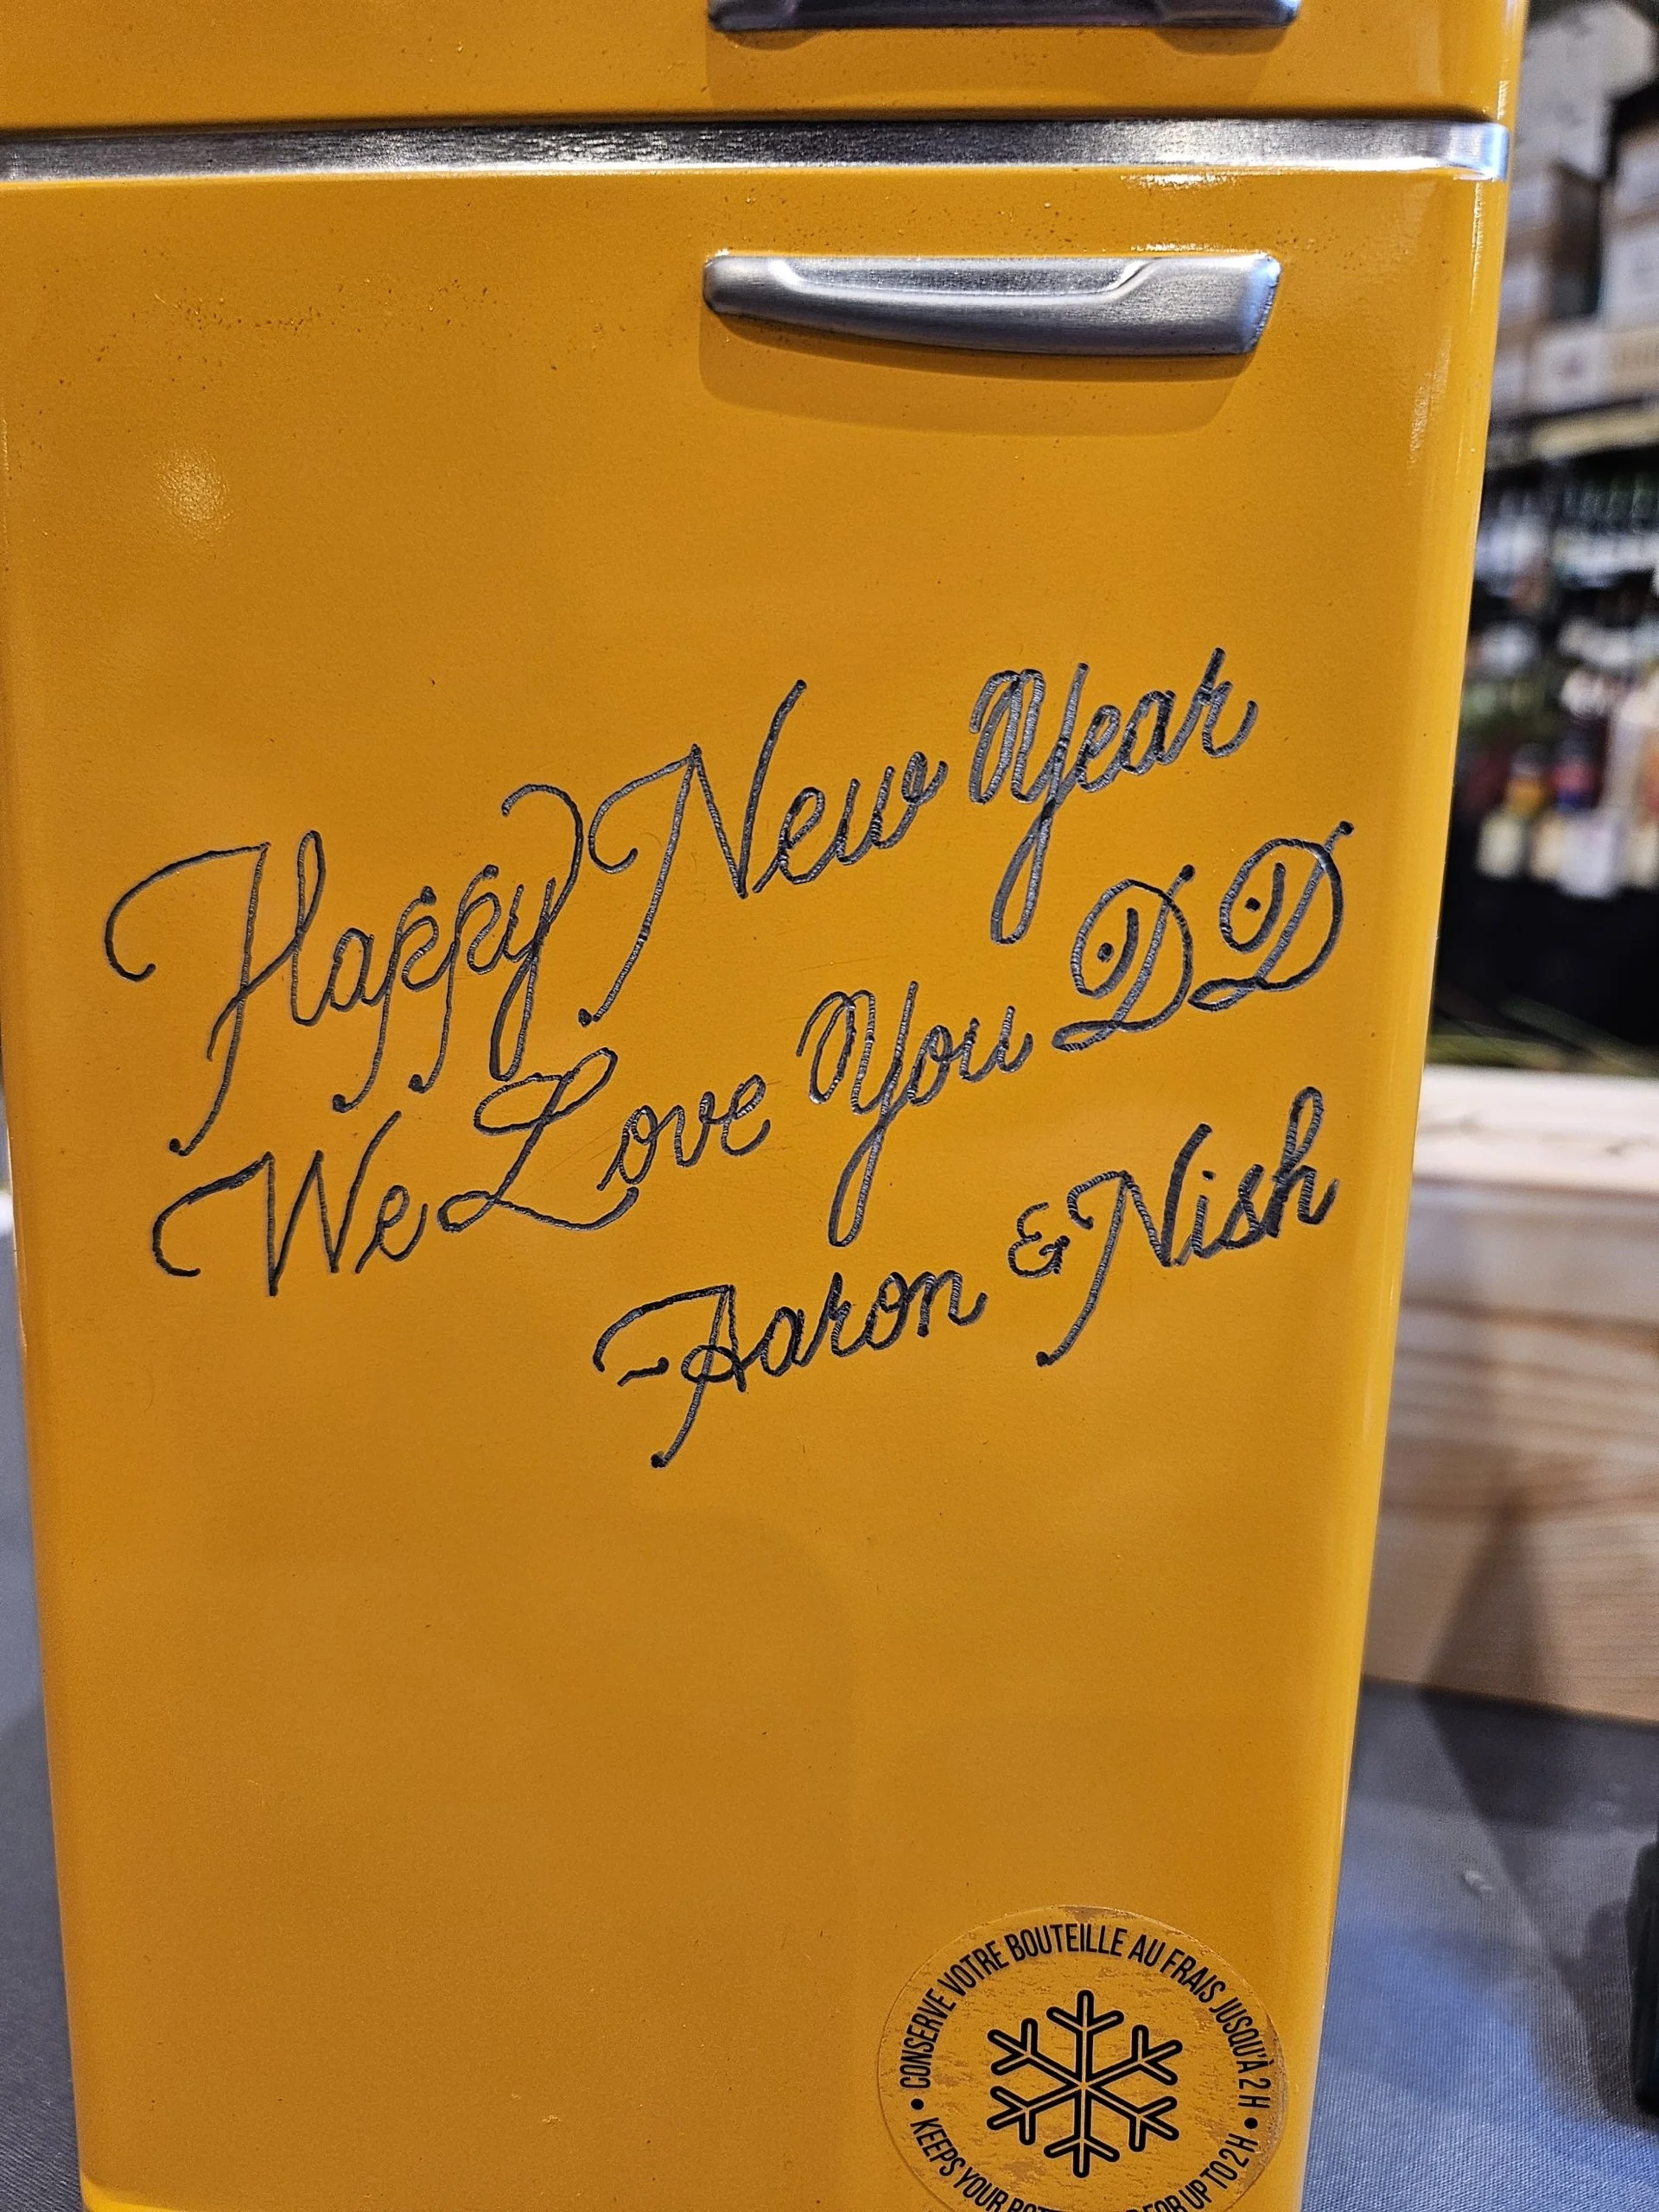 Happy New Year
We Love You DD
-Aaron & Nish
• CONSERVE VOTRE BOUTEILLE AU FRAIS JUSQU'À 2 H •
KEEPS YOUR FOR UP TO 2 H